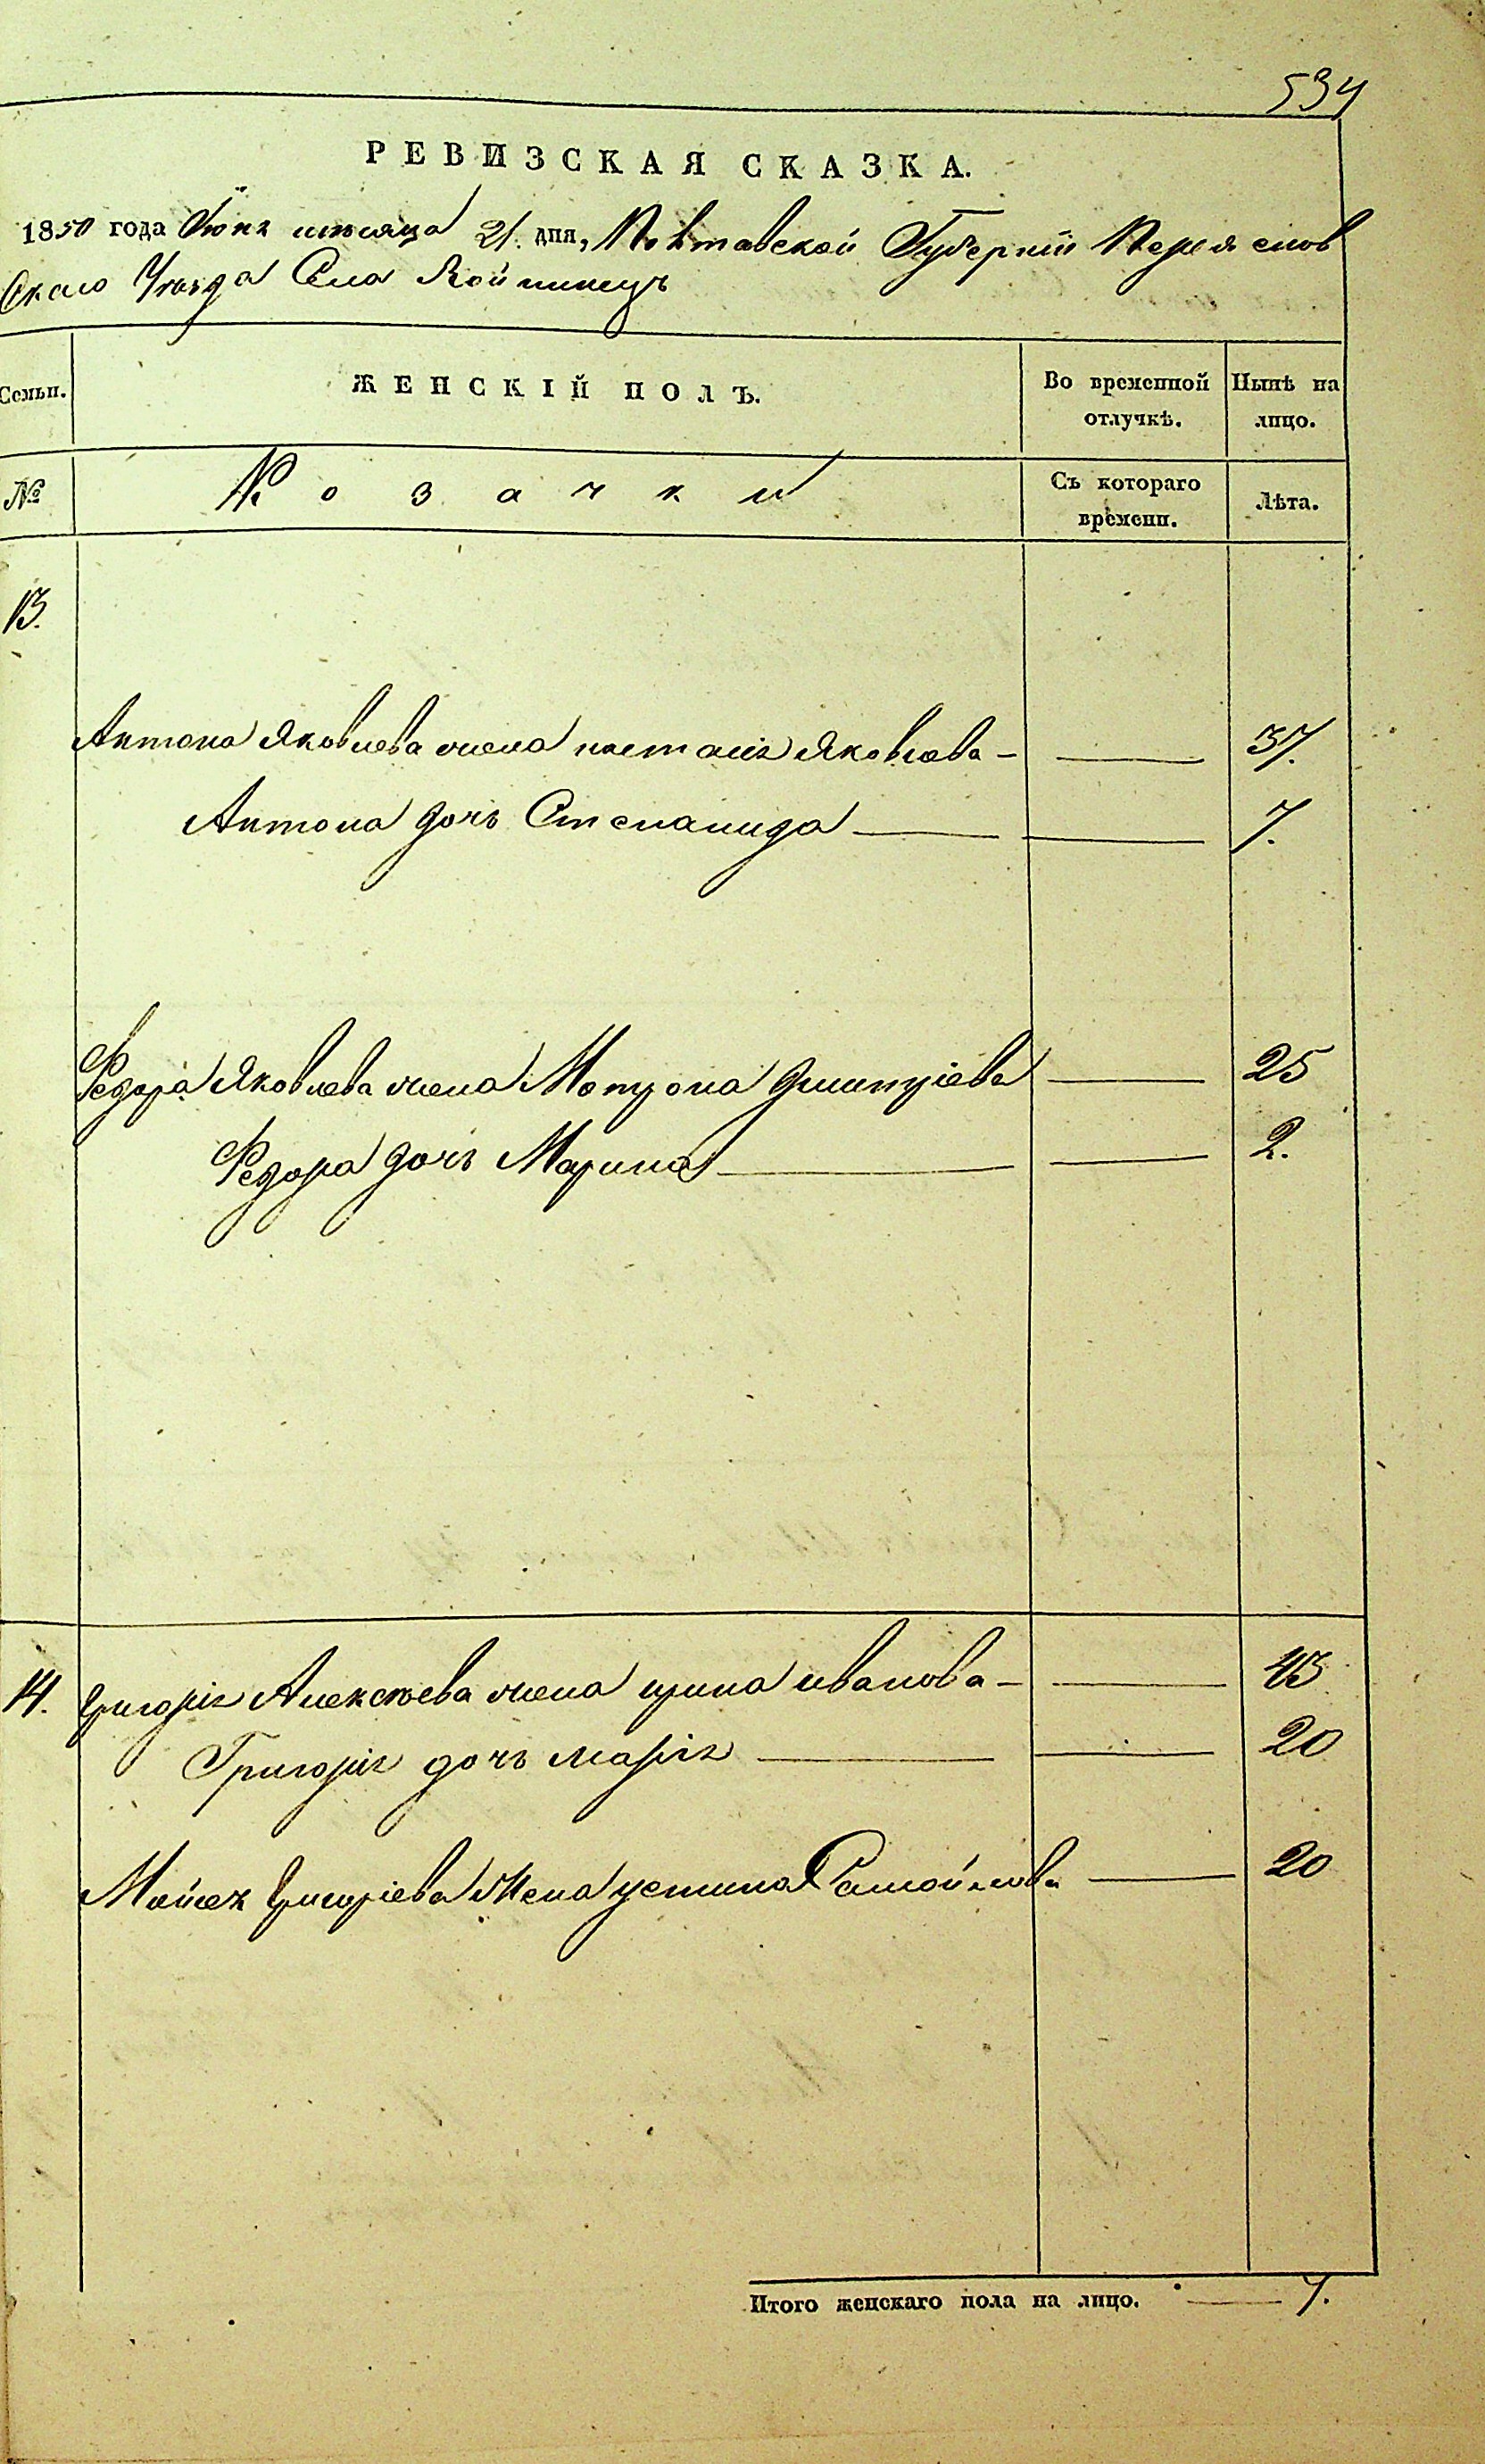 534
РЕВИЗСКАЯ СКАЗКА.
1850 года Іюня мѣсяца 21. дня, Полтавской Губерніи Переяслов
Скаго Уѣзда Села Войтинецъ
Семьи.
ЖЕНСКІЙ ПОЛЪ.
Во временной отлучкѣ.
Нынѣ на лицо.
№
Козачки
Съ котораго времени.
Лѣта.
13.
Антона Яковлева жена настасія Яковлева — — 37.
Антона дочь Степанида — — 7.
Федора Яковлева жена Мотрона Дмитріева — 25
Федора дочь Марина — — 2.
14. Григорія Алексѣева жена ирина иванова — — 43
Григорія дочь марія — — 20
Мойсея Григоріева жена устина Самойлова — 20
Итого женскаго пола на лицо. — 7.